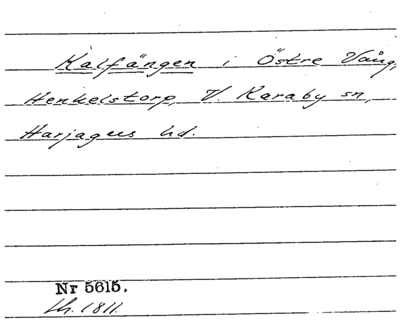 Kalfängen i Östre Vång,
Henkelstorp, V. Karaby sn,
Harjagers hd.
Nr 5615.
Lh. 1811.